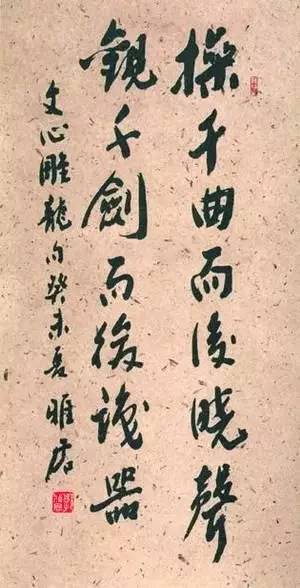 操千曲而後曉聲
觀千劍而後識器
文心雕龍句癸未